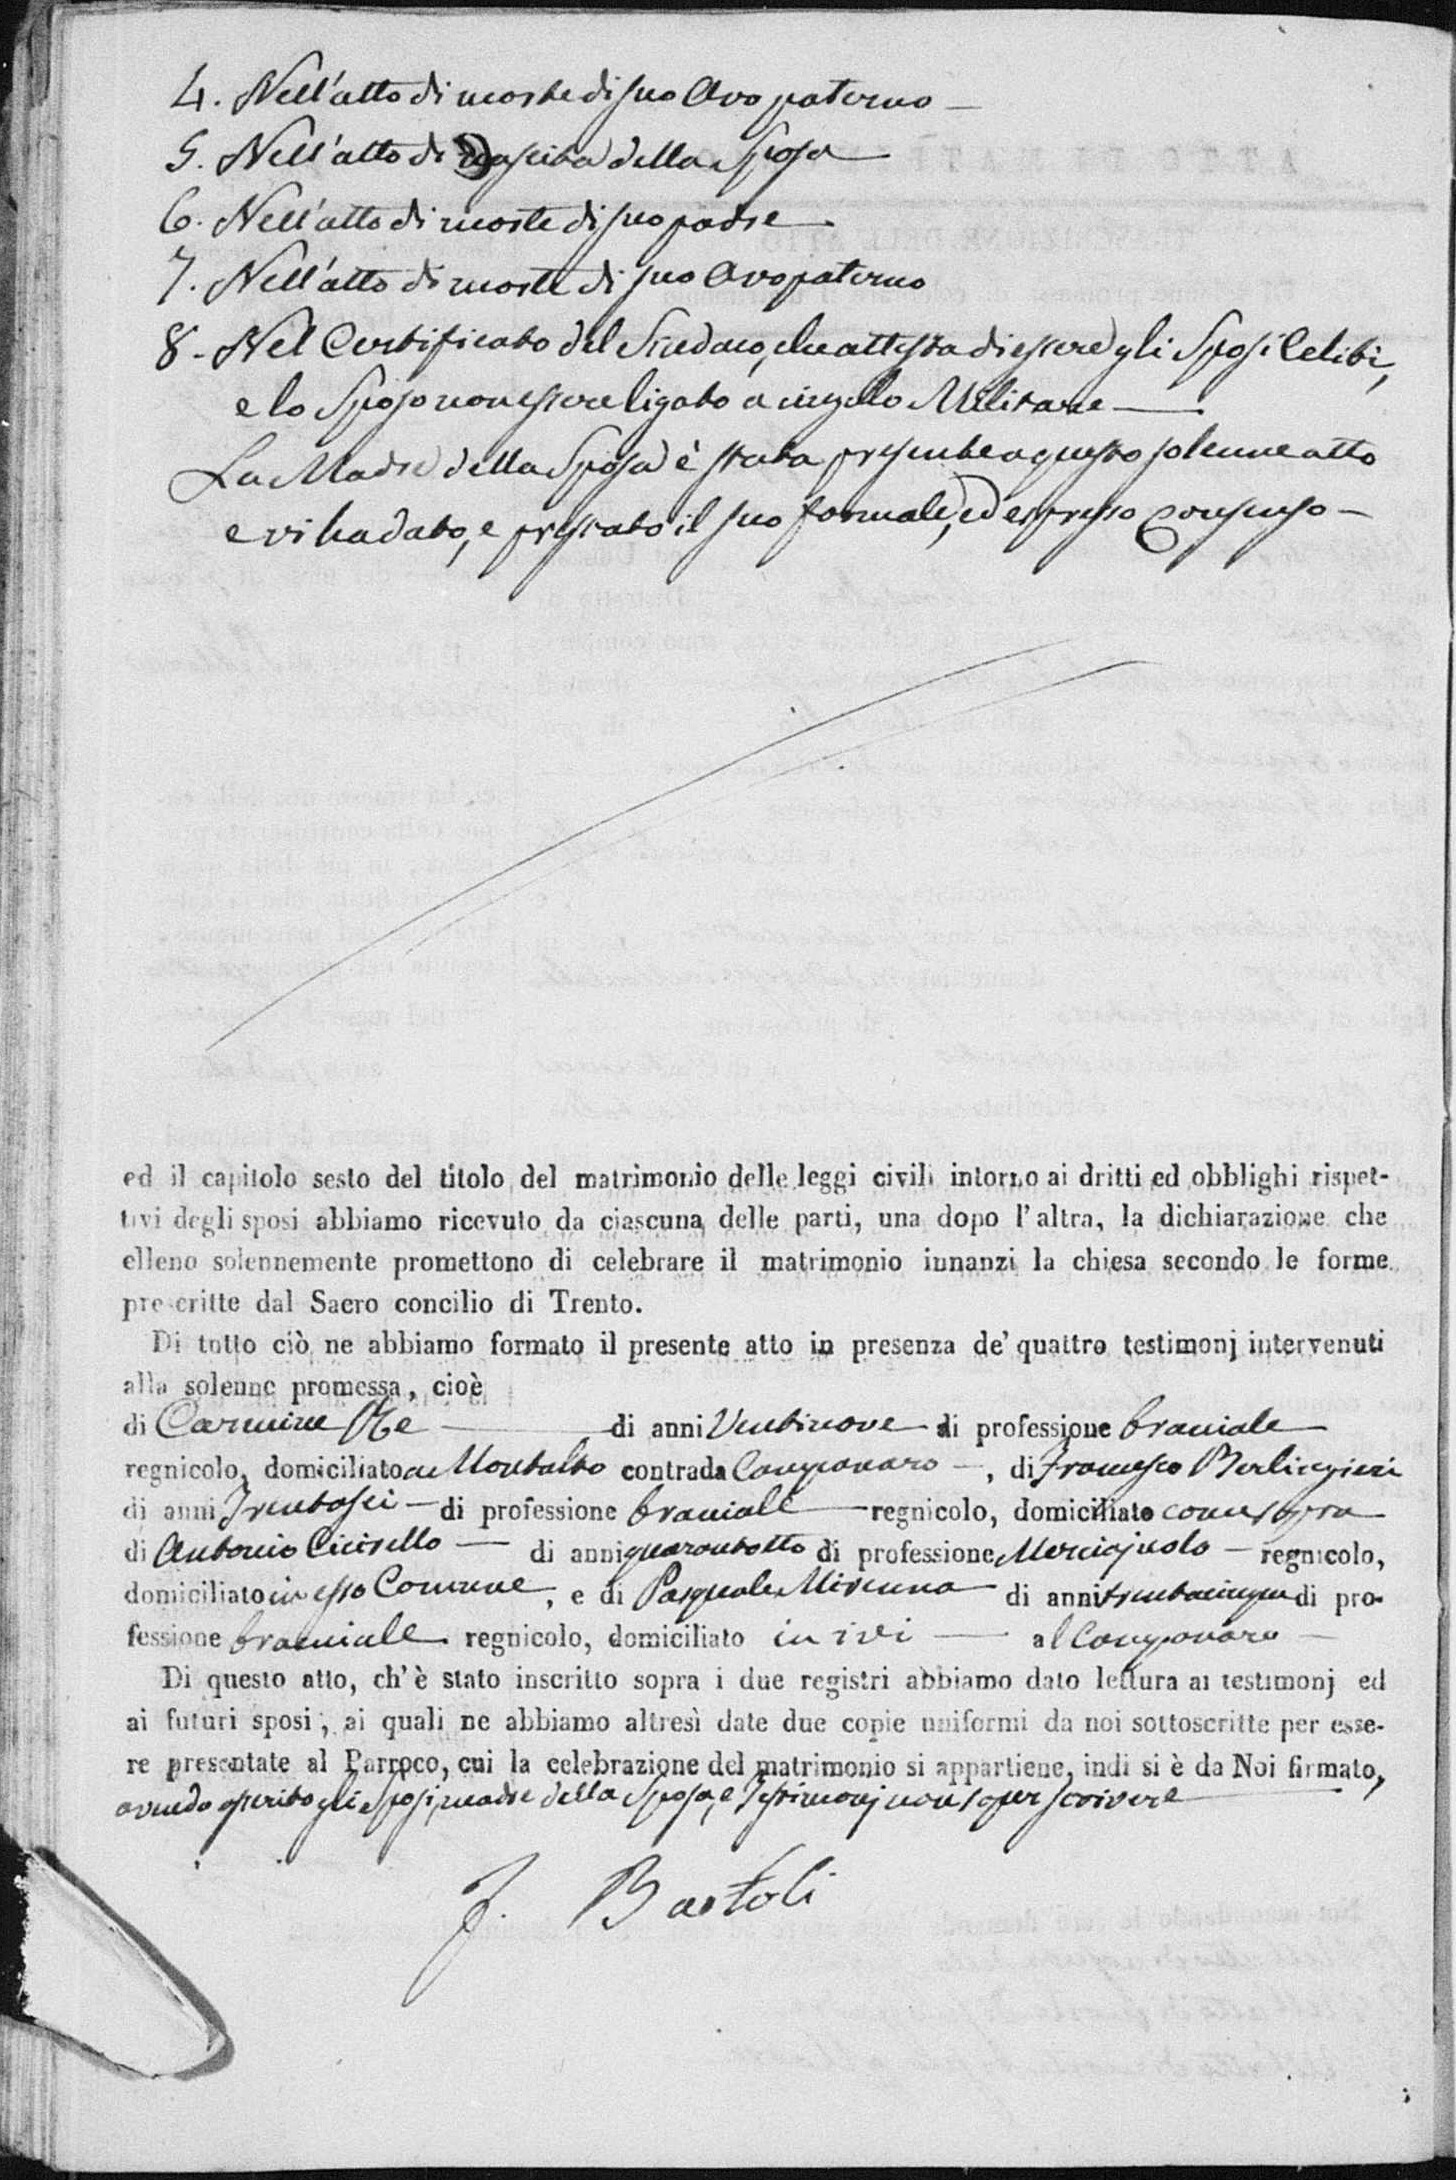 4. Nell'atto di morte di suo Avo paterno —
5. Nell'atto di nascita della Sposa
6. Nell'atto di morte di suo padre
7. Nell'atto di morte di suo Avo paterno
8 - Nel Certificato del Sindaco, che attesta di essere gli Sposi Celibi,
e lo Sposo non essere ligato a cingolo Militare —
La Madre della Sposa è stata presente a questo solenne atto
e vi ha dato, e prestato il suo formale, ed espresso Consenso —
ed il capitolo sesto del titolo del matrimonio delle leggi civili intorno ai dritti ed obblighi rispet-
tivi degli sposi abbiamo ricevuto da ciascuna delle parti, una dopo l'altra, la dichiarazione che
elleno solennemente promettono di celebrare il matrimonio innanzi la chiesa secondo le forme
prescritte dal Sacro concilio di Trento.
Di tutto ciò ne abbiamo formato il presente atto in presenza de' quattro testimonj intervenuti
alla solenne promessa, cioè
di Carmine — di anni Ventinove di professione bracciale
regnicolo, domiciliato a Montalto contrada —, di Francesco Berlingieri
di anni Trentasei — di professione bracciale regnicolo, domiciliato come sopra
di Antonio Cicirello — di anni quarantotto di professione Merciajuolo — regnicolo,
domiciliato in esso Comune, e di Pasquale di anni trentacinque di pro-
fessione bracciale regnicolo, domiciliato in ivi — al
Di questo atto, ch'è stato inscritto sopra i due registri abbiamo dato lettura ai testimonj ed
ai futuri sposi, ai quali ne abbiamo altresì date due copie uniformi da noi sottoscritte per esse-
re presentate al Parroco, cui la celebrazione del matrimonio si appartiene, indi si è da Noi firmato,
avendo asserito gli Sposi, madre della Sposa, e Testimonj non saper scrivere —
F. Bartoli